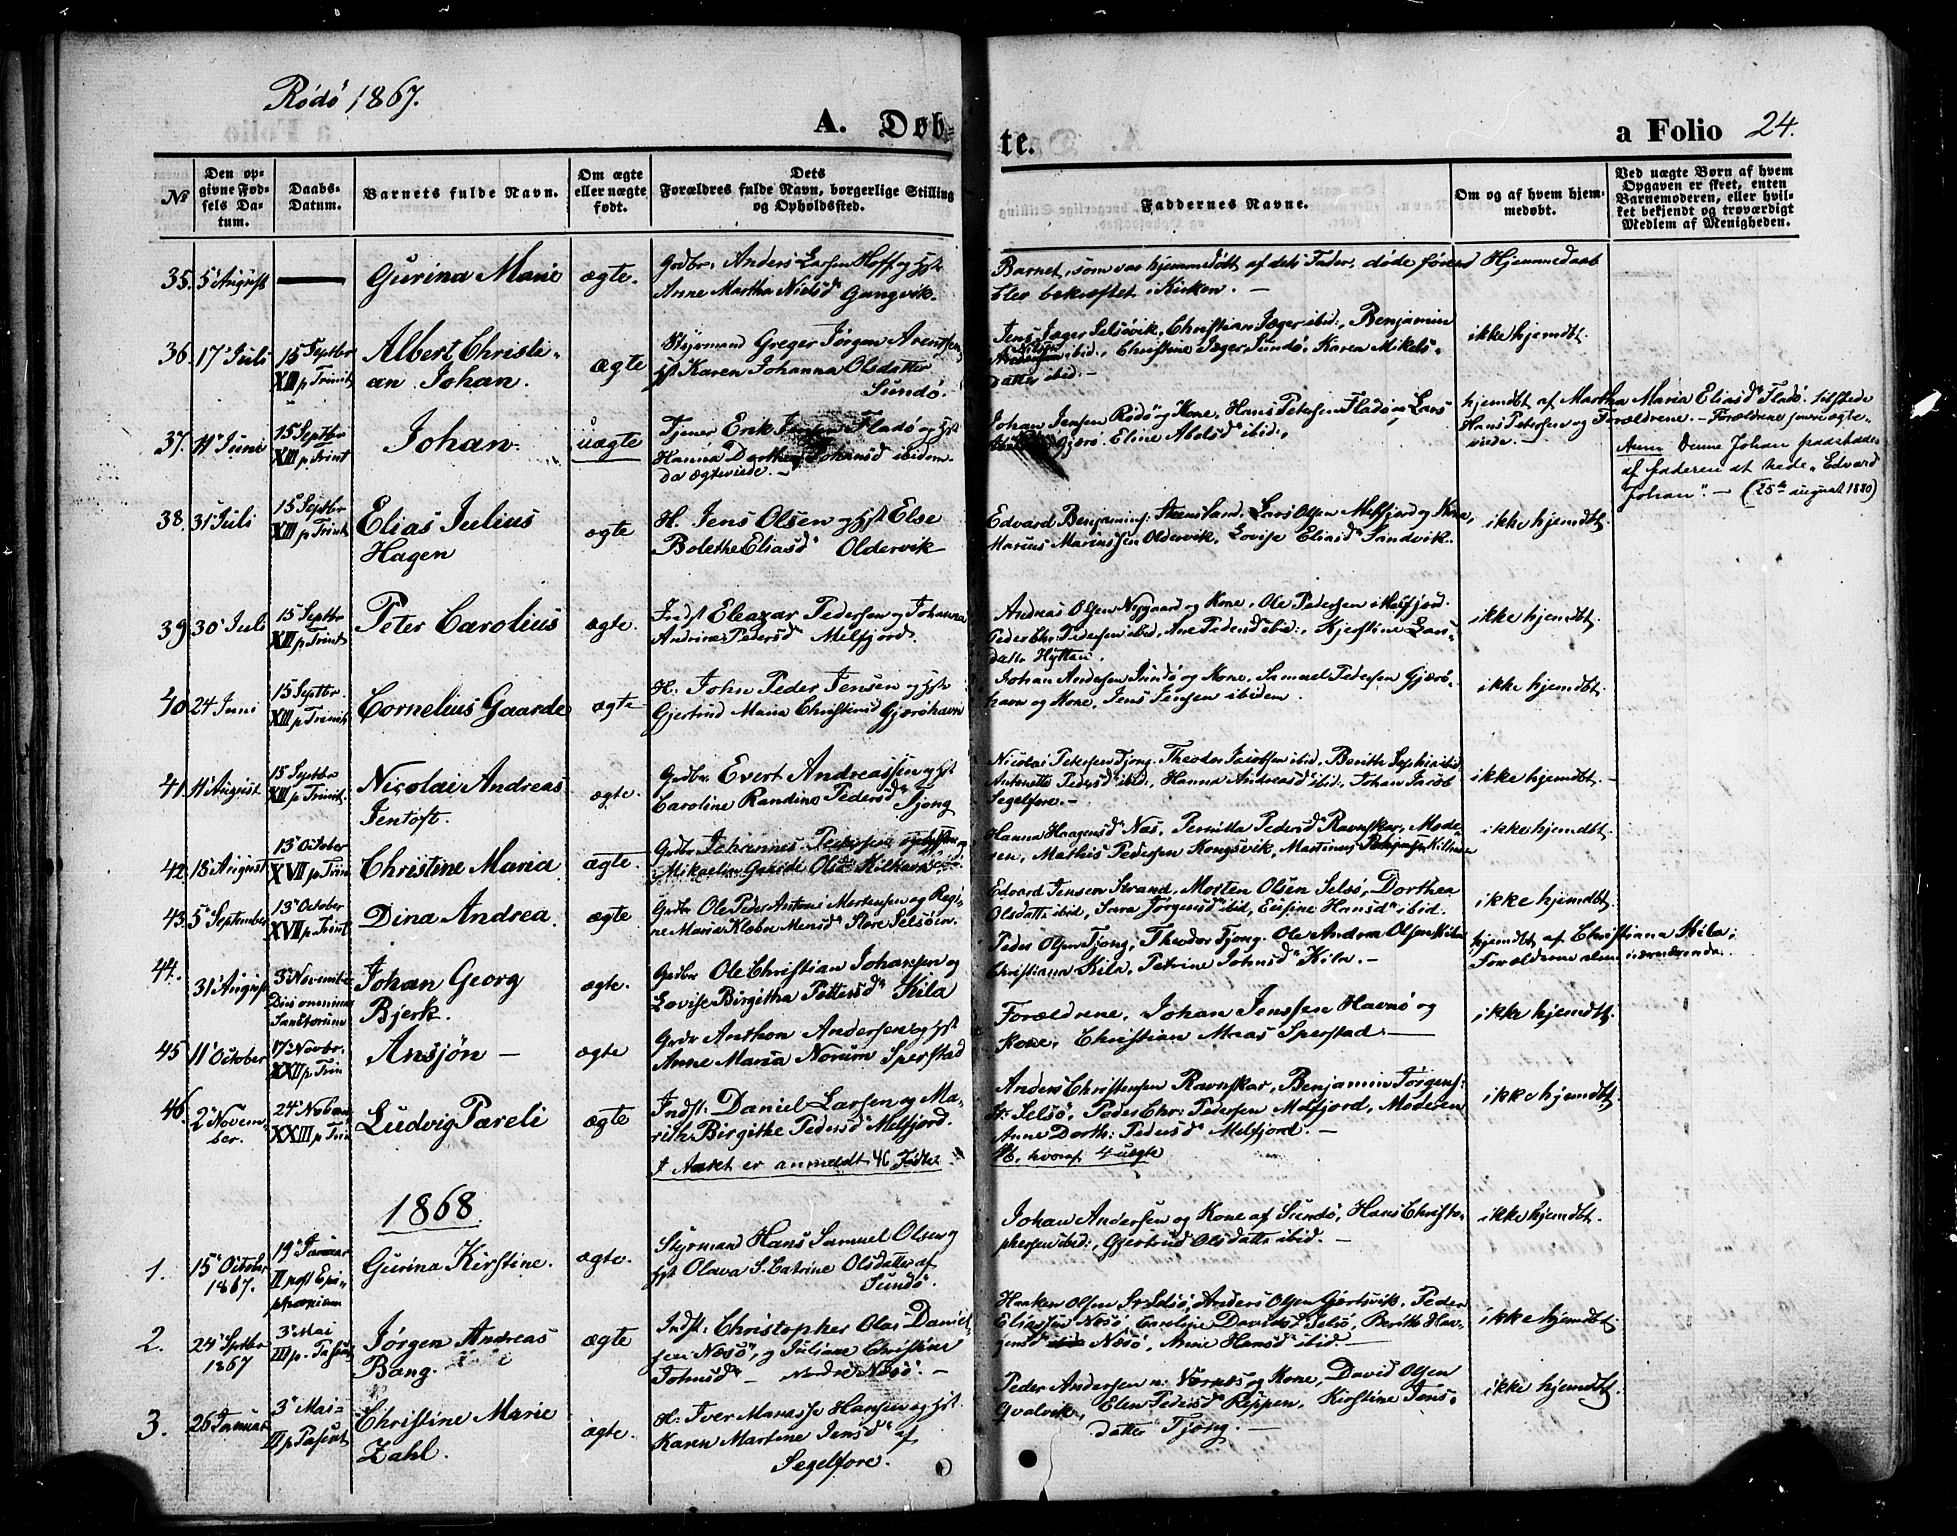 Rödö 1867.
A. Døb-
te.
a Folio 24.
№
Den op-
givne Fød-
sels Da-
tum.
Daabs-
Datum.
Barnets fulde Navn.
Om ægte
eller uægte
født.
Dets
Forældres fulde Navn, borgerlige Stilling
og Opholdssted.
Faddernes Navne.
Om og af hvem hjem-
medøbt.
Ved uægte Børn af hvem
Opgaven er skeet, enten
Barnemoderen, eller hvil-
ket bekjendt og troværdigt
Medlem af Menigheden.
35. 5 August — Gurina Marie ægte.
Grdbr. Anders Larsen Hoff og Hst
Anne Martha Nielsd Gangvik.
Barnet, som var hjemmedöbt af dets Fader, döde förend Hjemmedaab
blev bekræftet i Kirken. —
36. 17 Juli 15 Septbr XIII p Trinit
Albert Christi-
an Johan. ægte
Styrmand Greger Jörgen Arentsen
Hst Karen Johanna Olsdatter
Sundö.
Jens Jæger Selsövik, Christian Jæger ibid:, Benjamin
Nilsen
ibid:, Christine Jæger Sundö, Karen Mikels-
datter ibid. —
ikke hjemdbt.
37. 11 Juni 15 Septbr XIII p Trinit
Johan. uægte
Tjener Erik Fladö og Hst
Hanna Dorthea Johansd ibidem
da ægteviede. —
Johan Jensen Rödö og Kone, Hans Petersen Fladö og Lars
Gjerö. Eline Abelsd ibid:,
hjemdbt af Martha Maria Eliasd Fladö. tilstede
Hans Petersen og Forældrene. — Forældrene ægte-
viede. —
Anm Denne Johan paastodes
af faderen at hede „Edvard
Johan". — (25de august 1880)
38. 31 Juli 15 Septbr XIII p Trinit
Elias Julius
Hagen ægte
H. Jens Olsen og Hst Else
Bolethe Eliasd Oldervik
Edvard Benjamins. Steensland. Lars Olsen Melfjord og Kone,
Marius Mariussen Oldervik, Lovise Eliasd Sandvik.
ikke hjemdbt.
39. 30 Juli 15 Septbr XIII p Trinit
Peter Carolius ægte.
Indst Eleazar Pedersen og Johanna
Andrina Pedersd Melfjord.
Andreas Olsen Nygaard og Kone, Ole Pedersen i Melfjord.
Peder Chr. Pedersen ibid, Ane Pedersd ibid:, Kjerstine Lars-
datter Hyttan.
ikke hjemdbt.
40. 24 Juni 15 Septbr XIII p Trinit
Cornelius Gaarde ægte
H. John Peder Jensen og Hst
Gjertrud Maria Christinsd Gjeröhavn
Johan Andersen Sundö og Kone, Samuel Pedersen Gjærö-
havn og Kone, Jens Jensen ibidem.
ikke hjemdbt.
41. 11 August 15 Septbr XIII p Trinit.
Nicolai Andreas
Jentoft. ægte.
Grdbr. Evert Andreassen og Hst
Caroline Randine Pedersd Tjong
Nicolai Petersen Tjong. Theodor Jacobsen ibid, Beritte Sophia ibid
Antonette Pedersd ibid:, Hanna Andreasd ibid:, Johan Jacob
Segelfore. —
ikke hjemdbt. —
42. 18 August 13 October XVII p Trin
Christine Maria ægte.
Grdbr Johannes Pedersen og
Mikaeline Gurine Olsd Kilhavn
Hanna Haagensd Næs, Pernitta Pedersd Ravnskar, Mode-
ren, Mathis Pedersen Kongsvik, Martinus Kilhavn
ikke hjemdbt.
43. 5 September 13 October XVII p Trinit
Dina Andrea. ægte
Grdbr Ole Peder Antoni Mortensen og Regi-
ne Maria Klaboe Mensd Store Selsöen.
Edvard Jensen Strand, Morten Olsen Selsö, Dorthea
Olsdatter ibid, Sara Jörgensd ibid, Eufine Hansd ibid.
ikke hjemdbt.
44. 31 August 3 Novembr Dies omnium Sanctorum
Johan Georg
Bjerk. ægte.
Grdbr Ole Christian Johansen og
Lovise Birgitha Pettersd Kila
Peder Olsen Tjong, Theodor Tjong. Ole Andreas Olsen Kila
Christiana Kila, Petrine Johnsd Kila. —
hjemdbt af Christiana Kila;
Forældrene alene nærværende.
45 11 October 17 Novbr. XXII p. Trin
Ansjön — ægte
Grdbr Anthon Andersen og Hst
Anne Maria Norum Sperstad
Forældrene, Johan Jenssen Havnö og
Kone, Christian Moses Sperstad. —
ikke hjemdbt.
46. 2 Novem-
ber. 24 Novbr XXIII p Trin
Ludvig Pareli ægte
Indst: Daniel Larsen og Ma-
rith Birgithe Pedersd Melfjord.
I Aaret er anmeldt 46 Födte.
Anders Christensen Ravnskar, Benjamin Jörgens:
St: Selsö, Peder Chr: Pedersen Melfjord, Moderen
Anne Dorth: Pedersd Melfjord. —
46, hvoraf 4 uægte
ikke hjemdbt.
1868.
1. 15 October
1867. 19 Januar II post Epi-
phaniam
Gurina Kirstine. ægte.
Styrmand Hans Samuel Olsen og
Hst Olava S. Catrine Olsdatter af
Sundö.
Johan Andersen og Kone af Sundö, Hans Christo-
phersen ibid:, Gjertrud Olsdatter ibid. —
ikke hjemdbt.
2. 24 Septbr
1867 3 Mai III p. Pasch
Jörgen Andreas
Bang. ægte
Indst: Christopher Olai Daniel-
sen Næsö, og Juliane Christine
Johnsd — Nordre Næsö. —
Haaken Olsen St: Selsö, Anders Olsen Gjertsvik, Peder
Eliassen Næsö, Davidsd Selsö, Beritte Haa-
gensd Næsö, Anne Hansd ibid. —
ikke hjemdbt.
3. 26 Januar 3 Mai III p Pasch
Christine Marie
Zahl. ægte.
H: Iver Manasse Hansen og Hst.
Karen Martine Jensd af
Segelfore.
Peder Andersen n: Værnes og Kone, David Olsen
Qvalvik, Elen Pedersd Reppen, Kirstine Jens-
datter Tjong. —
ikke hjemdbt.